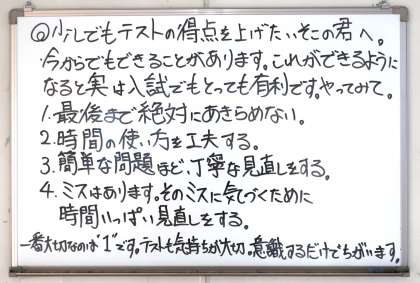 ◎少しでもテストの得点を上げたい、そこの君へ。
・今からでもできることがあります。これができるように
なると実は入試でもとっても有利です。やってみて。
1.最後まで絶対にあきらめない。
2.時間の使い方を工夫する。
3.簡単な問題ほど、丁寧な見直しをする。
4.ミスはあります。そのミスに気づくために
時間いっぱい見直しをする。
一番大切なのは"1"です。テストも気持ちが大切。意識するだけでちがいます。